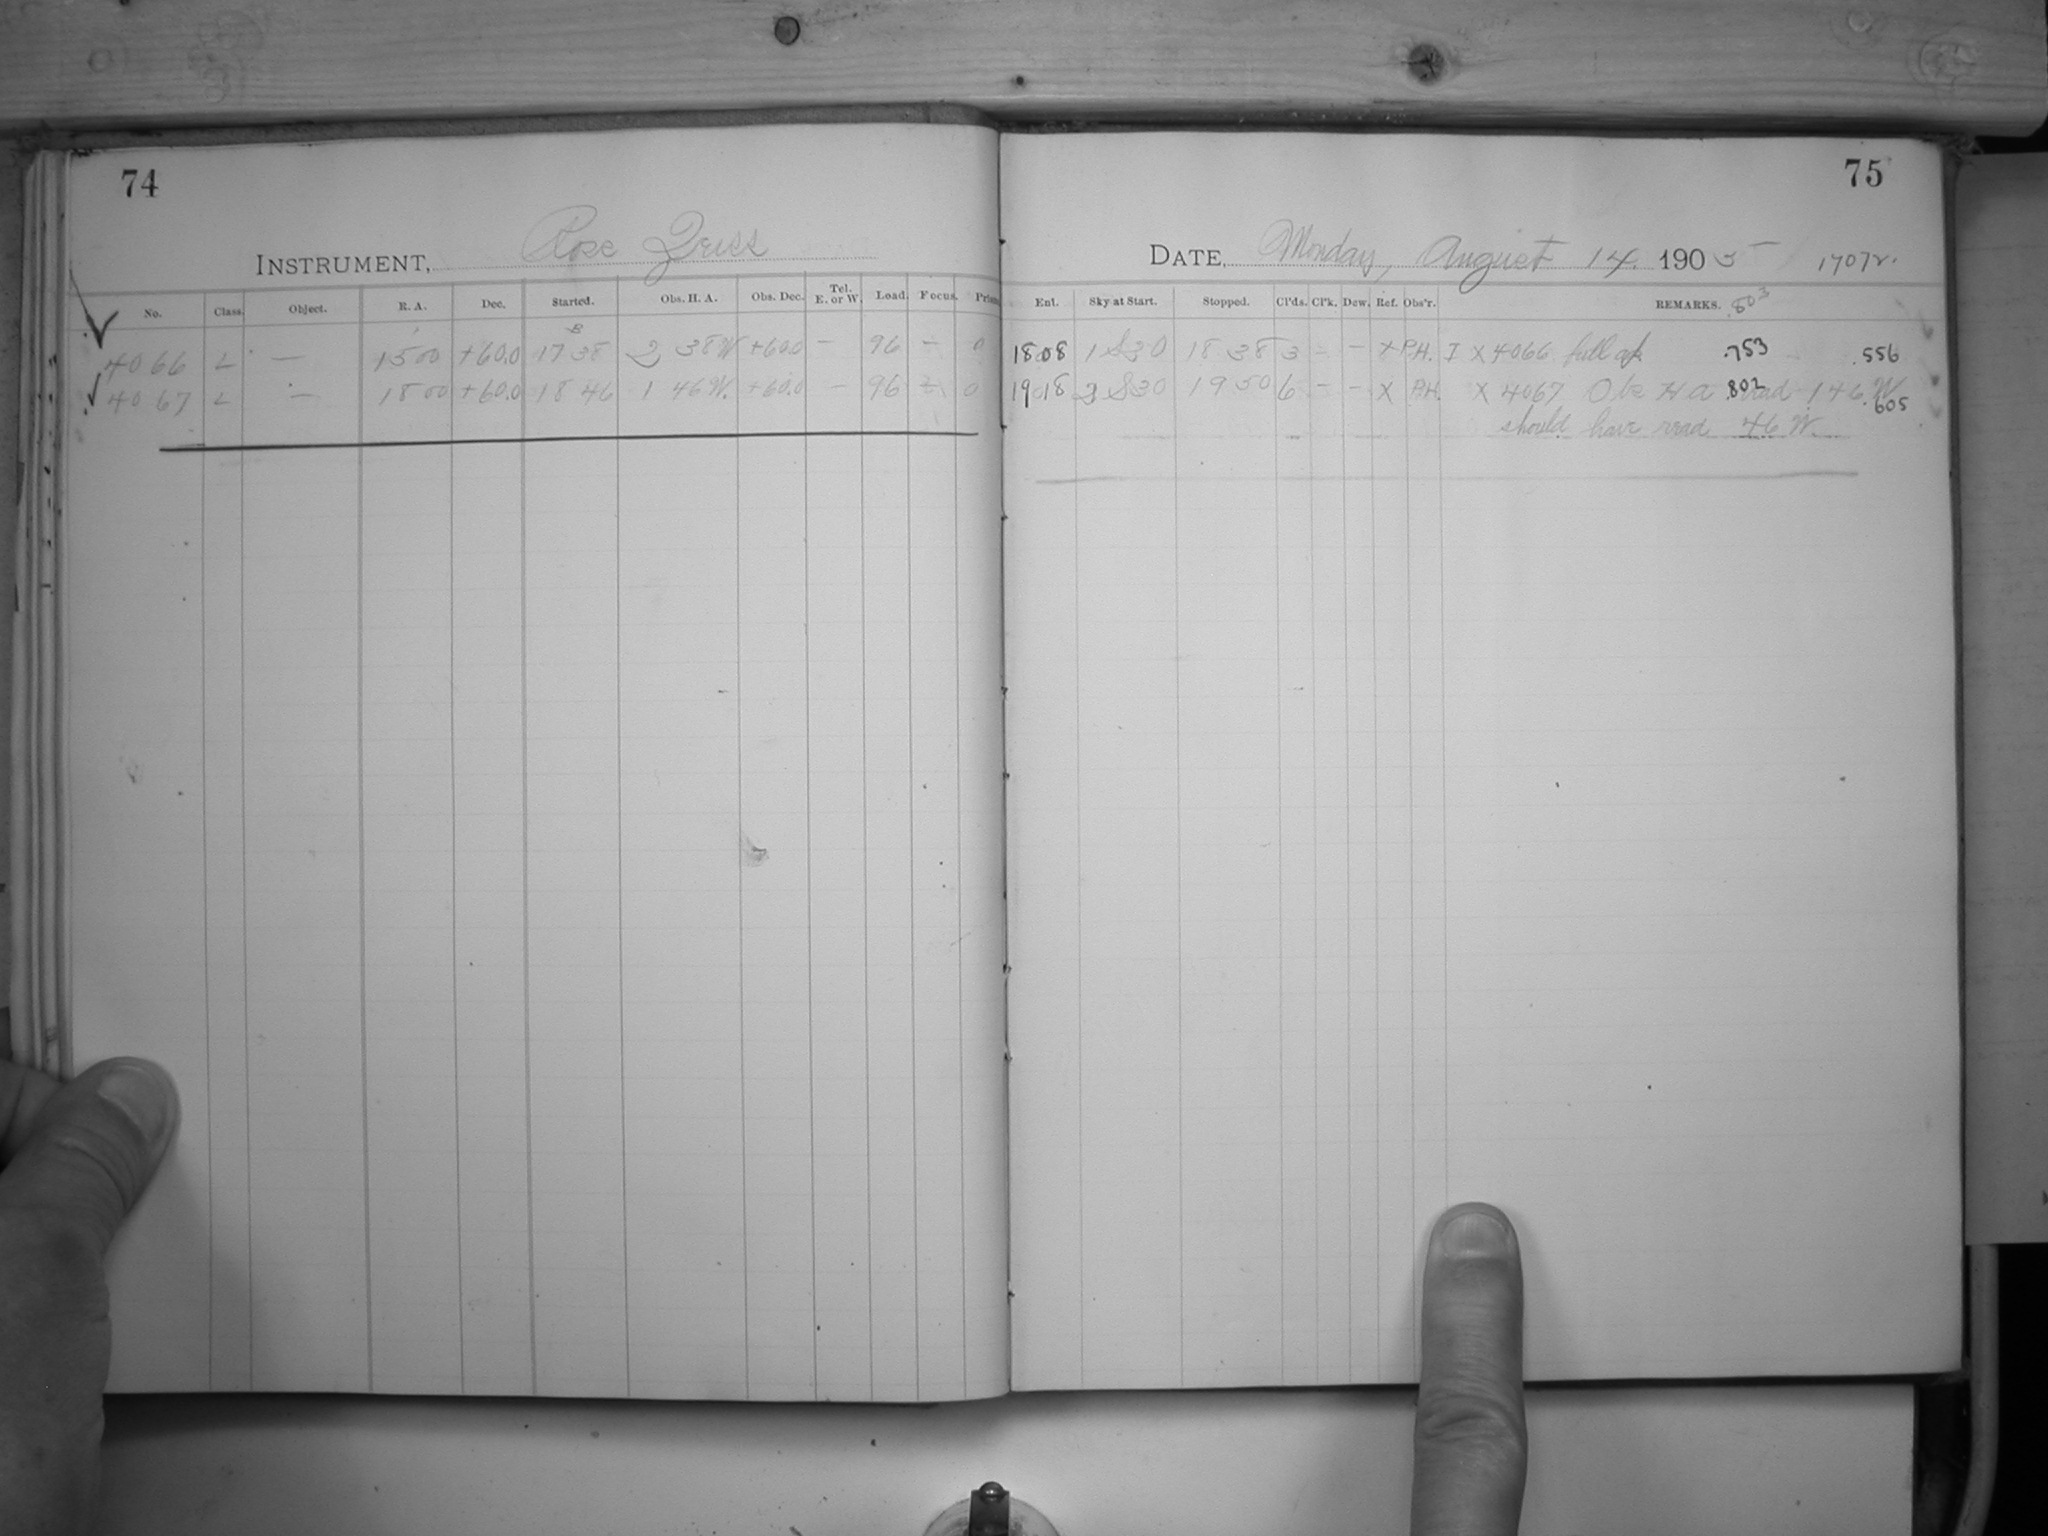 74
INSTRUMENT, Rose Zeiss
No. Class. Object. R. A. Dec. Started. Obs. H. A. Obs. Dec. Tel. E. or W. Load. Focus.
4066 L — 15 00 +60.0 17 38 2 38 W +60.0 — 96 — 0
4067 L — 18 00 +60.0 18 46 1 46 W. +60.0 — 96 0
75
DATE, Monday, August 14. 1905 17072.
Ent. Sky at Start. Stopped. Cl'ds. Cl'k. Dew. Ref. Obs'r. REMARKS. .803
1808 1 S30 18 38 3 - - X P.H. I X 4066 full .753 .556
1918 S30 19 50 6 - - X P.H. X 4067 Obs H a .802 read 1 46 W .605
should have read 46 W.